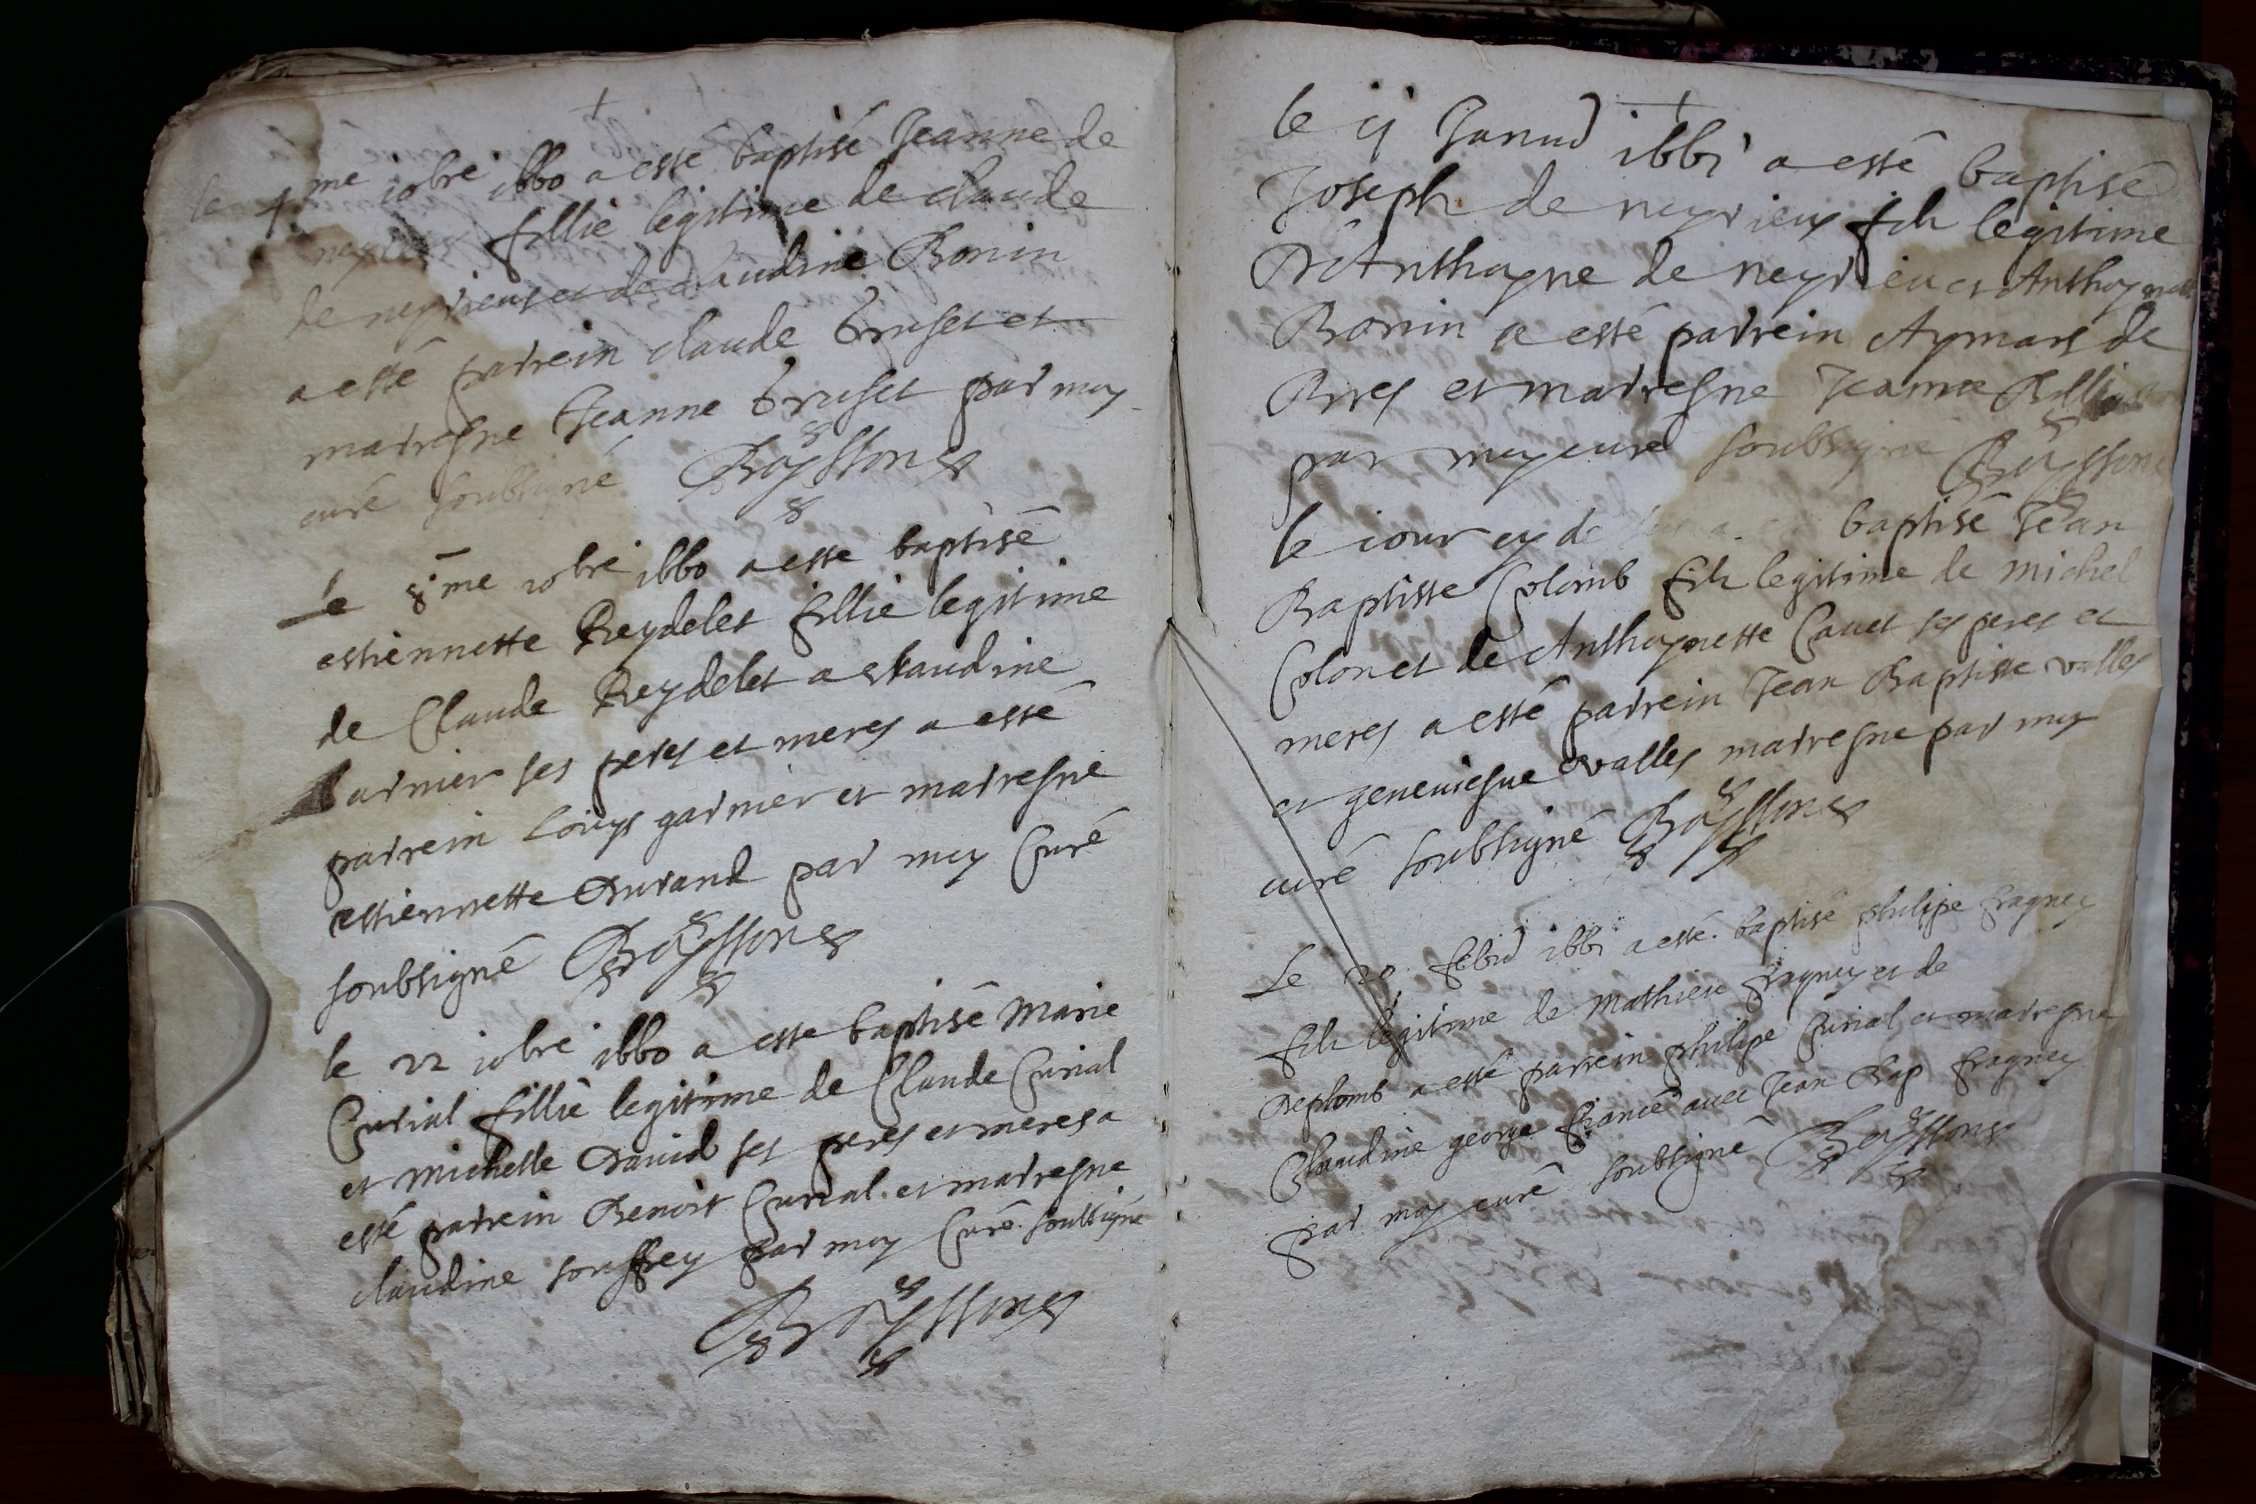 le 4me 10bre 1660 a esté baptisé Jeanne de
neyrieus fillie legitime de claude
de neyrieus et de claudine Bonin
a esté parrein claude truset et
marresne Jeanne truset par moy
curé soubsigné Boyssons
Le 8me 10bre 1660 a esté baptisé
estiennette Reydelet fillie legitime
de Claude Reydelet a claudine
garnier ses peres et meres a esté
parrein Louys garnier et marresne
estiennette Durand par moy Curé
soubsigné Boyssons
le 22 10bre 1660 a esté baptisé Marie
Curial fillie legitime de Claude Curial
et Michelle David ses peres et meres a
esté parrein Benoit Curial et marresne
claudine souffrey par moy Curé soubsigné
Boyssons
le ii Janvd 1661 a esté baptisé
Joseph de neyrieus fils legitime
D'Anthoyne de neyrieu et Anthoynette
Bonin a esté parrein Aymars de
Bres et marresne Jeanne
par moy curé soubsigné Boyssons
le iour cy de baptisé Jean
Baptiste Colomb fils legitime de michel
Colon et de Anthoynette Cavet ses peres et
meres a esté parrein Jean Baptiste valles
et geneviesve valles marresne par moy
curé soubsigné Boyssons
Le 20 febvd 1661 a esté baptisé philipe fragney
fils legitime de Mathieu fragney et de
Deplomb a esté parrein philipe Curial et marresne
Claudine george fiancée avec Jean Bap fragney
par moy curé soubsigné Boyssons